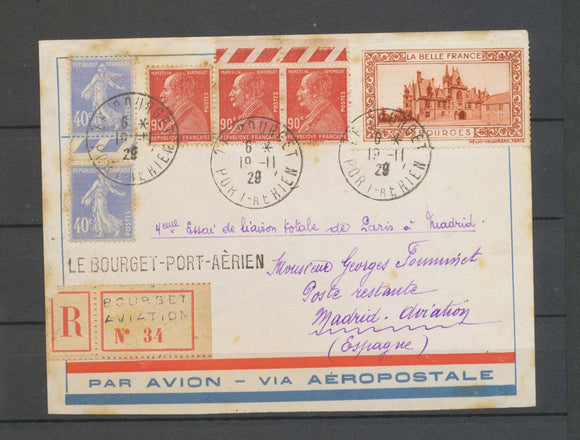 RÉPUBLIQUE FRANÇAISE
40c
POSTES
MARCELIN BERTHELOT
90c
POSTES
RÉPUBLIQUE FRANÇAISE
MARCELIN BERTHELOT
90c
POSTES
RÉPUBLIQUE FRANÇAISE
MARCELIN BERTHELOT
90c
POSTES
RÉPUBLIQUE FRANÇAISE
LA BELLE FRANCE
BOURGES
HELIO-VAUGIRARD, PARIS
LE BOURGET
6 *
19-11
29
PORT-AÉRIEN
LE BOURGET
6 *
19-11
29
PORT-AÉRIEN
LE BOURGET
6 *
19-11
29
PORT-AÉRIEN
40c
POSTES
4eme Essai de liaison totale de Paris à Madrid
LE BOURGET-PORT-AÈRIEN
Monsieur Georges
Poste restante
Madrid-Aviation
(Espagne)
R
BOURGET
AVIATION
N° 34
PAR AVION - VIA AÉROPOSTALE